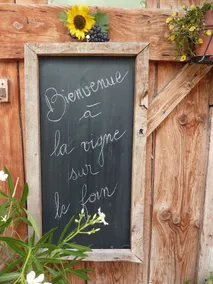 Bienvenue
à
la vigne
sur
le foin